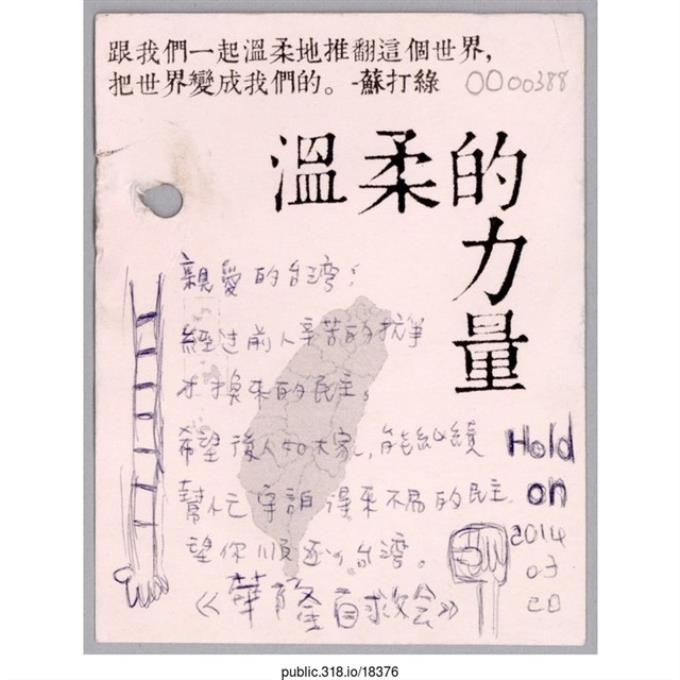 跟我們一起溫柔地推翻這個世界，
把世界變成我們的。-蘇打綠
0000388
溫柔的
力量
親愛的台灣：
經过前人辛苦的抗爭
才換來的民主。
希望後人如大家，能繼續
幫忙守護得來不易的民主
望你順遂，台灣。
《華隆自救会》
Hold
on
2014
03
20
public.318.io/18376